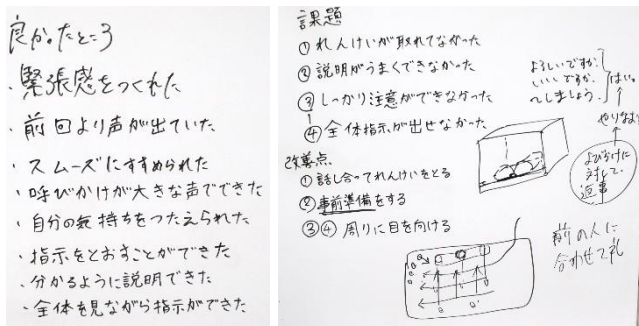 良かったところ
・緊張感をつくれた
・前回より声が出ていた
・スムーズにすすめられた
・呼びかけが大きな声でできた
・自分の気持ちをつたえられた
・指示をとおすことができた
・分かるように説明できた
・全体を見ながら指示ができた
課題
①れんけいが取れてなかった
②説明がうまくできなかった
③しっかり注意ができなかった
④全体指示が出せなかった
改善点
①話し合ってれんけいをとる
②事前準備をする
③④周りに目を向ける
よろしいですか。
いいですか。
〜しましょう。
はい。
やりなおし
よびかけに
対して
返事
前の人に
合わせて礼